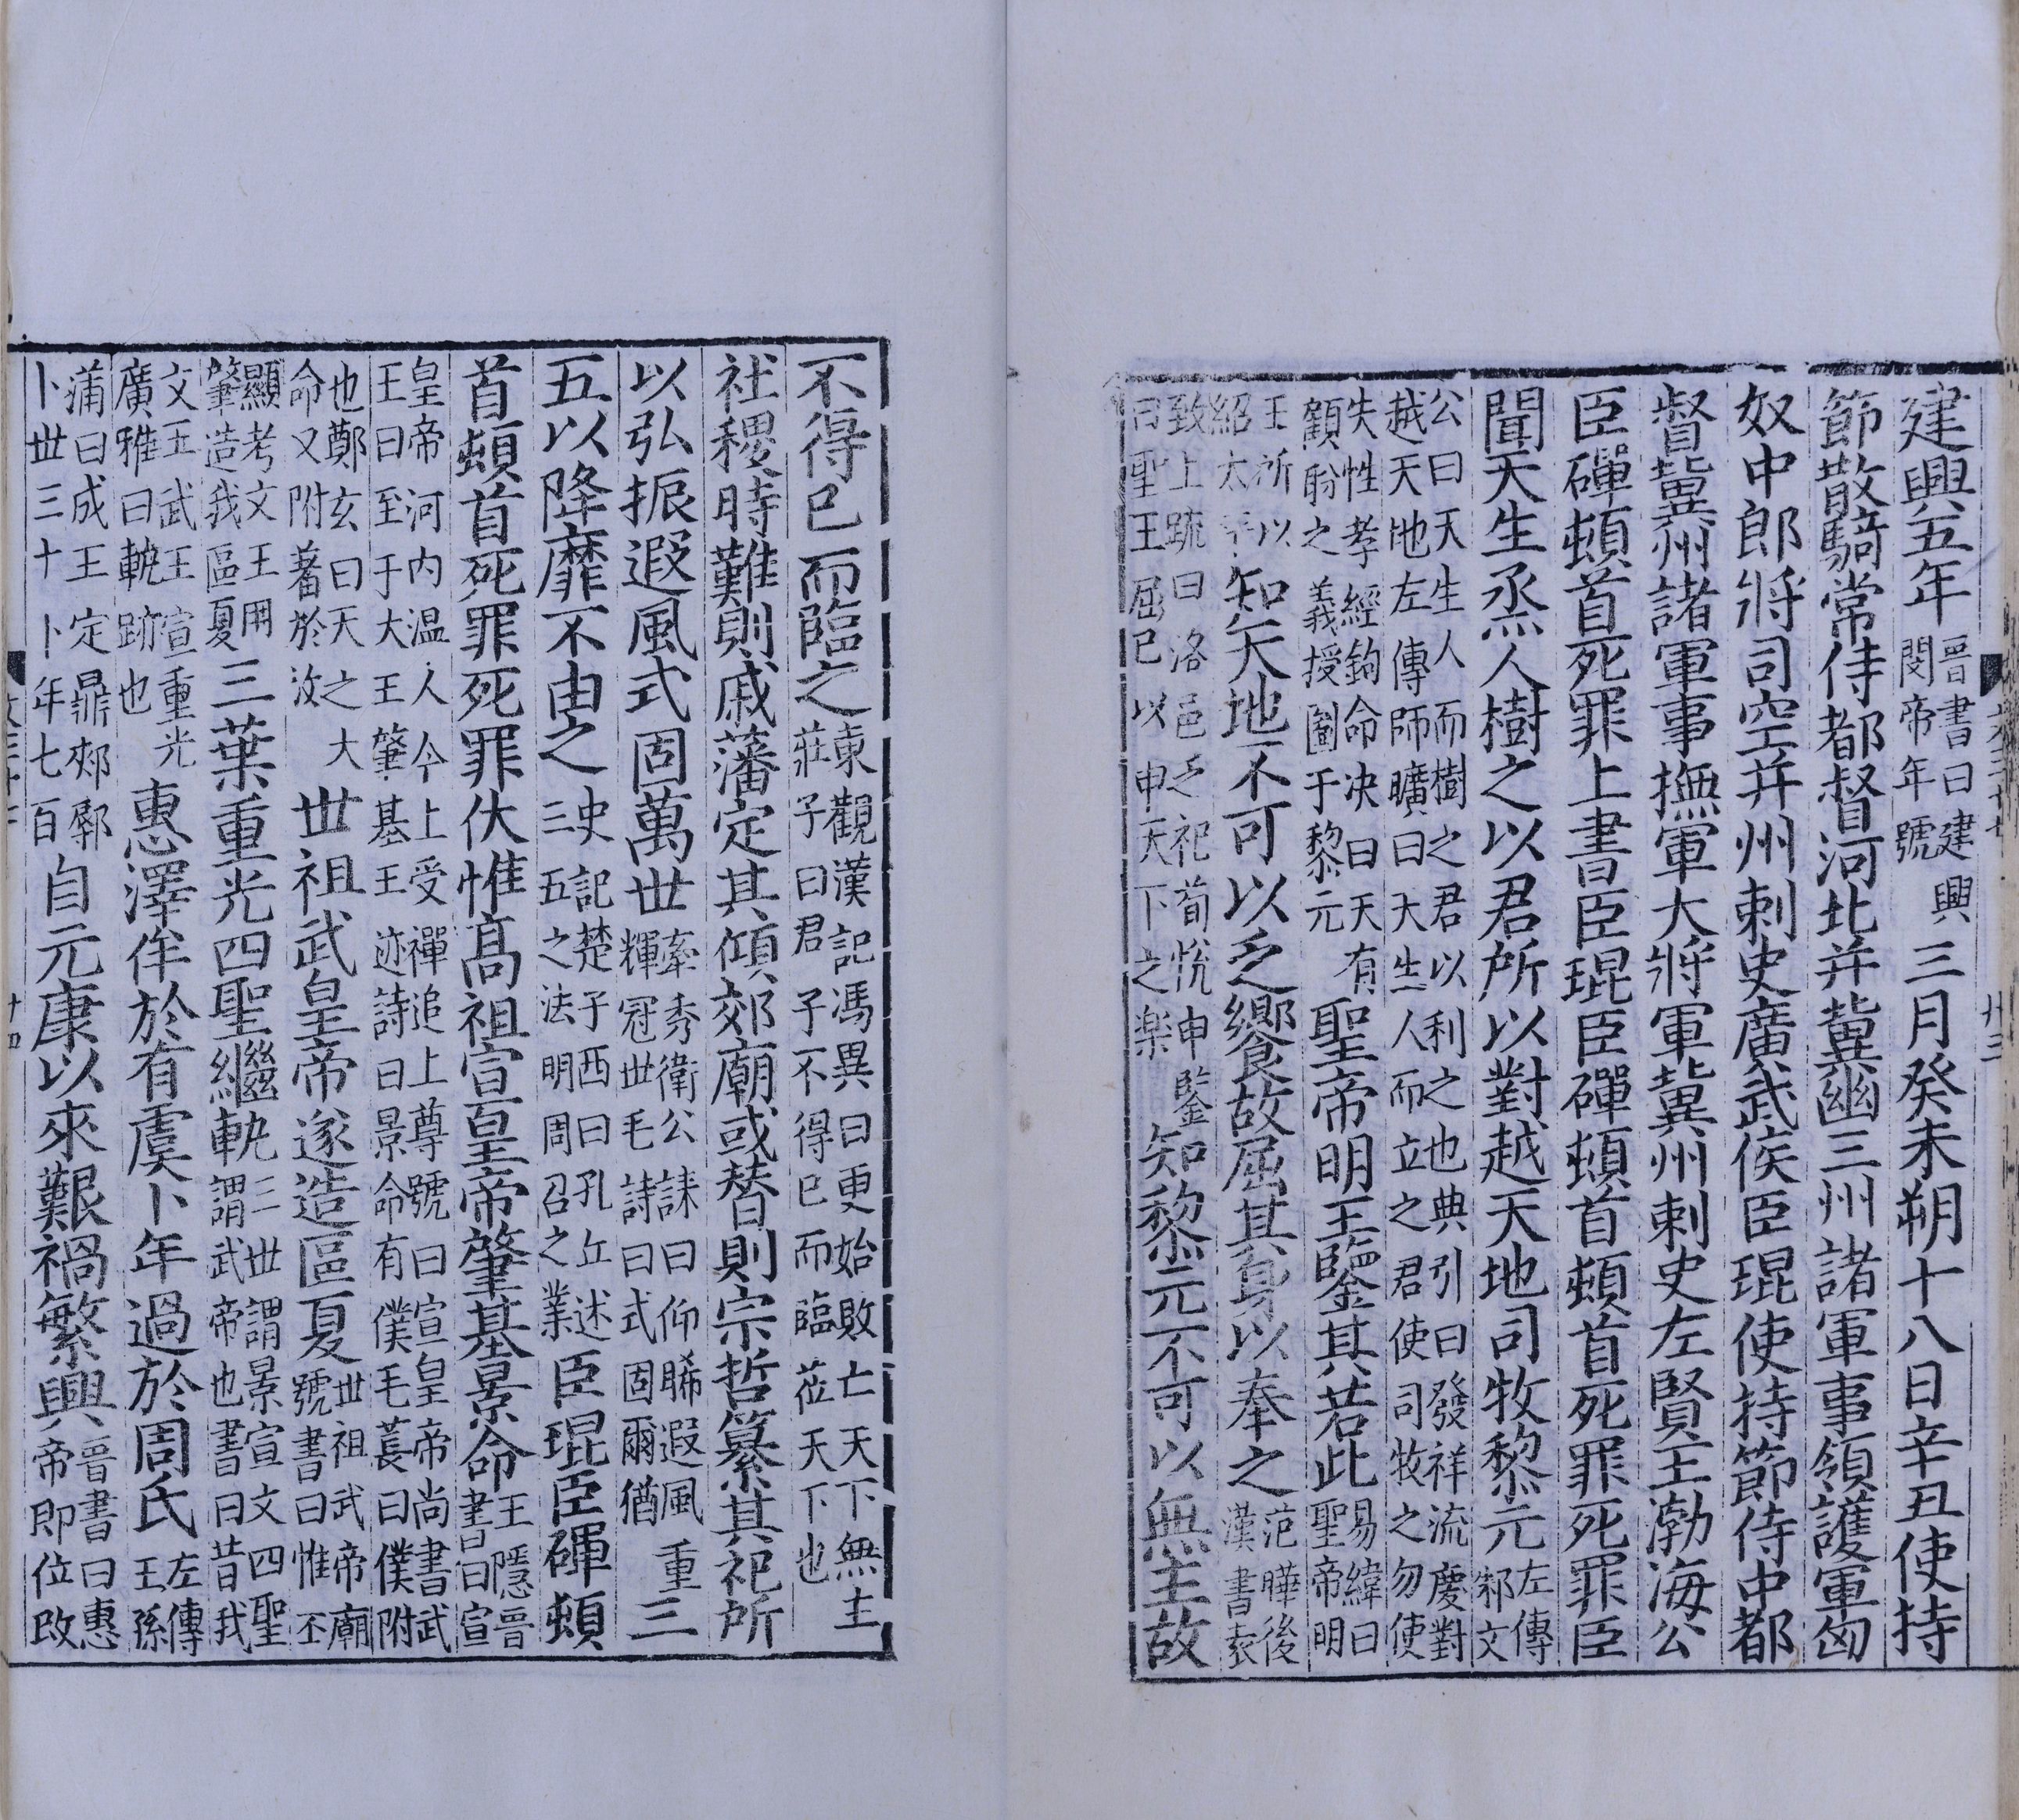 建興五年晉書曰建興閔帝年號三月癸未朔十八日辛丑使持
節散騎常侍都督河北并冀幽三州諸軍事領護軍匈
奴中郎將司空并州刺史廣武侯臣琨使持節侍中都
督冀州諸軍事撫軍大將軍冀州刺史左賢王渤海公
臣磾頓首死罪上書臣琨臣磾頓首頓首死罪死罪臣
聞天生烝人樹之以君所以對越天地司牧黎元左傳邾文
公曰天生人而樹之君以利之也典引曰發祥流慶對
越天地左傳師曠曰天生人而立之君使司牧之勿使
失性孝經鉤命决曰天有
顧盻之義授圖于黎元聖帝明王鑒其若此易緯曰聖帝明
王所以
紹太平知天地不可以乏饗故屈其身以奉之范曄後漢書袁
致上疏曰洛邑乏祀荀悅申鑒
曰聖王屈已以申天下之樂知黎元不可以無主故
不得已而臨之東觀漢記馮異曰更始敗亡天下無主莊子曰君子不得已而臨莅天下也
社稷時難則戚藩定其傾郊廟或替則宗哲纂其祀所
以弘振遐風式固萬世牽秀衛公誄曰仰睎遐風重輝冠世毛詩曰式固爾猶三
五以降靡不由之史記楚子西曰孔丘述三五之法明周召之業臣琨臣磾頓
首頓首死罪死罪伏惟高祖宣皇帝肇基景命王隱晉書曰宣
皇帝河内温人今上受禪追上尊號曰宣皇帝尚書武
王曰至于大王肇基王迹詩曰景命有僕毛萇曰僕附
也鄭玄曰天之大
命又附著於汝世祖武皇帝遂造區夏世祖武帝廟號書曰惟丕
顯考文王用
肇造我區夏三葉重光四聖繼軌三世謂景宣文四聖謂武帝也書曰昔我
文王武王宣重光
廣雅曰軌跡也惠澤侔於有虞卜年過於周氏左傳王孫
蒲曰成王定鼎郟鄏
卜世三十卜年七百自元康以來艱禍繁興晉書曰惠帝即位改